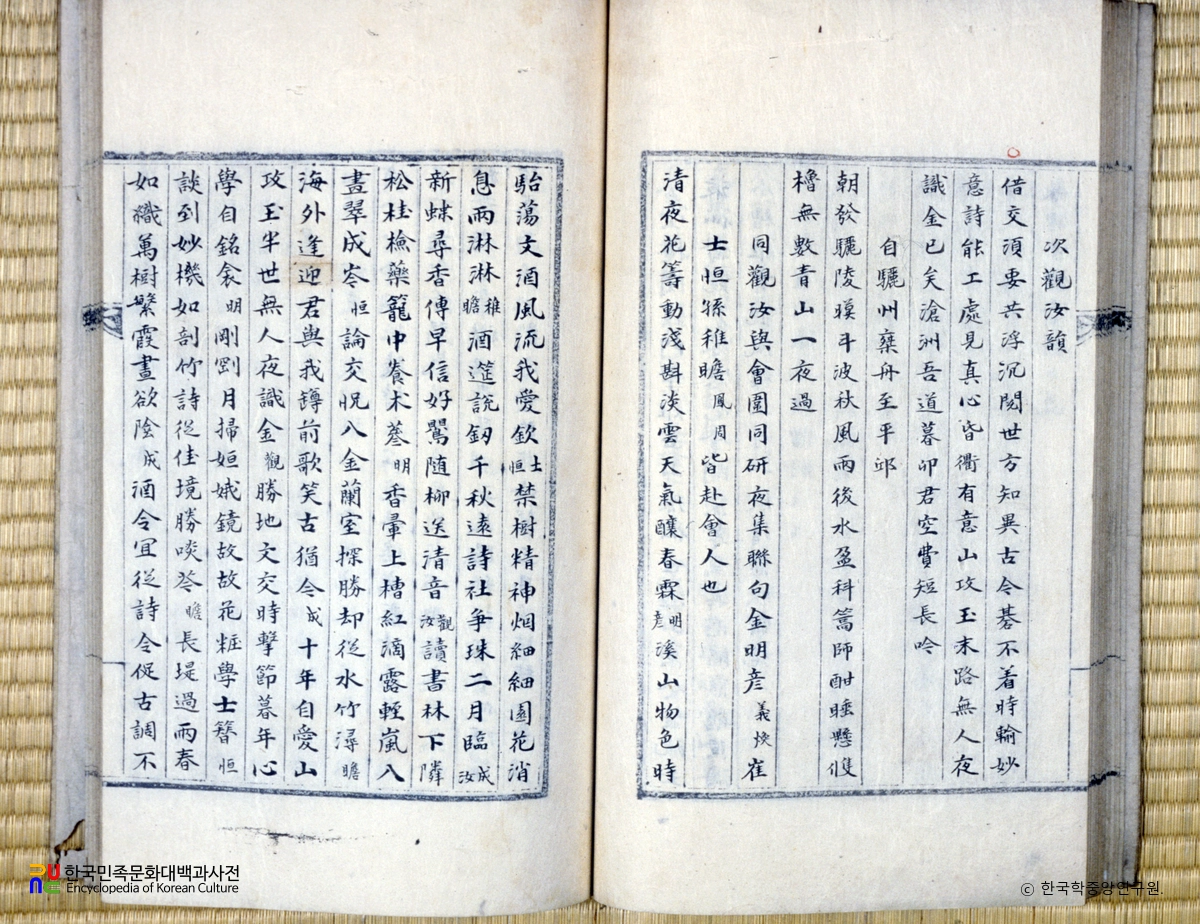 次觀汝韻
借交須要共浮沉閱世方知異古今碁不着時輸妙
意詩能工處見真心皆衢有意山攻玉末路無人夜
識金已矣滄洲吾道暮卯君空費短長吟
自驪州棄舟至平邱
朝發驪陵暎斗波秋風雨後水盈科篙師酣睡懸雙
櫓無數青山一夜過
同觀汝與會圍同研夜集聯句金明彦義煥崔
士恒孫稚瞻鳳周皆赴會人也
清夜花籌動淺斟淡雲天氣釀春霖明彦溪山物色時
駘蕩文酒風流我愛欽士恒禁樹精神烟細細園花消
息雨淋淋稚瞻酒筵說釰千秋遠詩社爭珠二月臨成汝
新蝶尋香傳早信好鸎随柳送清音觀汝讀書林下隣
松桂檢藥籠中養术蔘明香暈上槽紅滴露輕嵐入
畫翠成岑恒論交怳入金蘭室探勝却從水竹潯瞻
海外逢迎君與我罇前歌笑古猶今成十年自愛山
攻玉半世無人夜識金觀勝地文交時擊節暮年心
學自銘衾明剛劉月掃姮娥鏡故故花粧學士簪恒
談到妙機如剖竹詩從佳境勝啖苓瞻長堤過雨春
如織萬樹繁霞晝欲陰成酒令冝從詩令促古調不
한국민족문화대백과사전
Encyclopedia of Korean Culture
© 한국학중앙연구원.